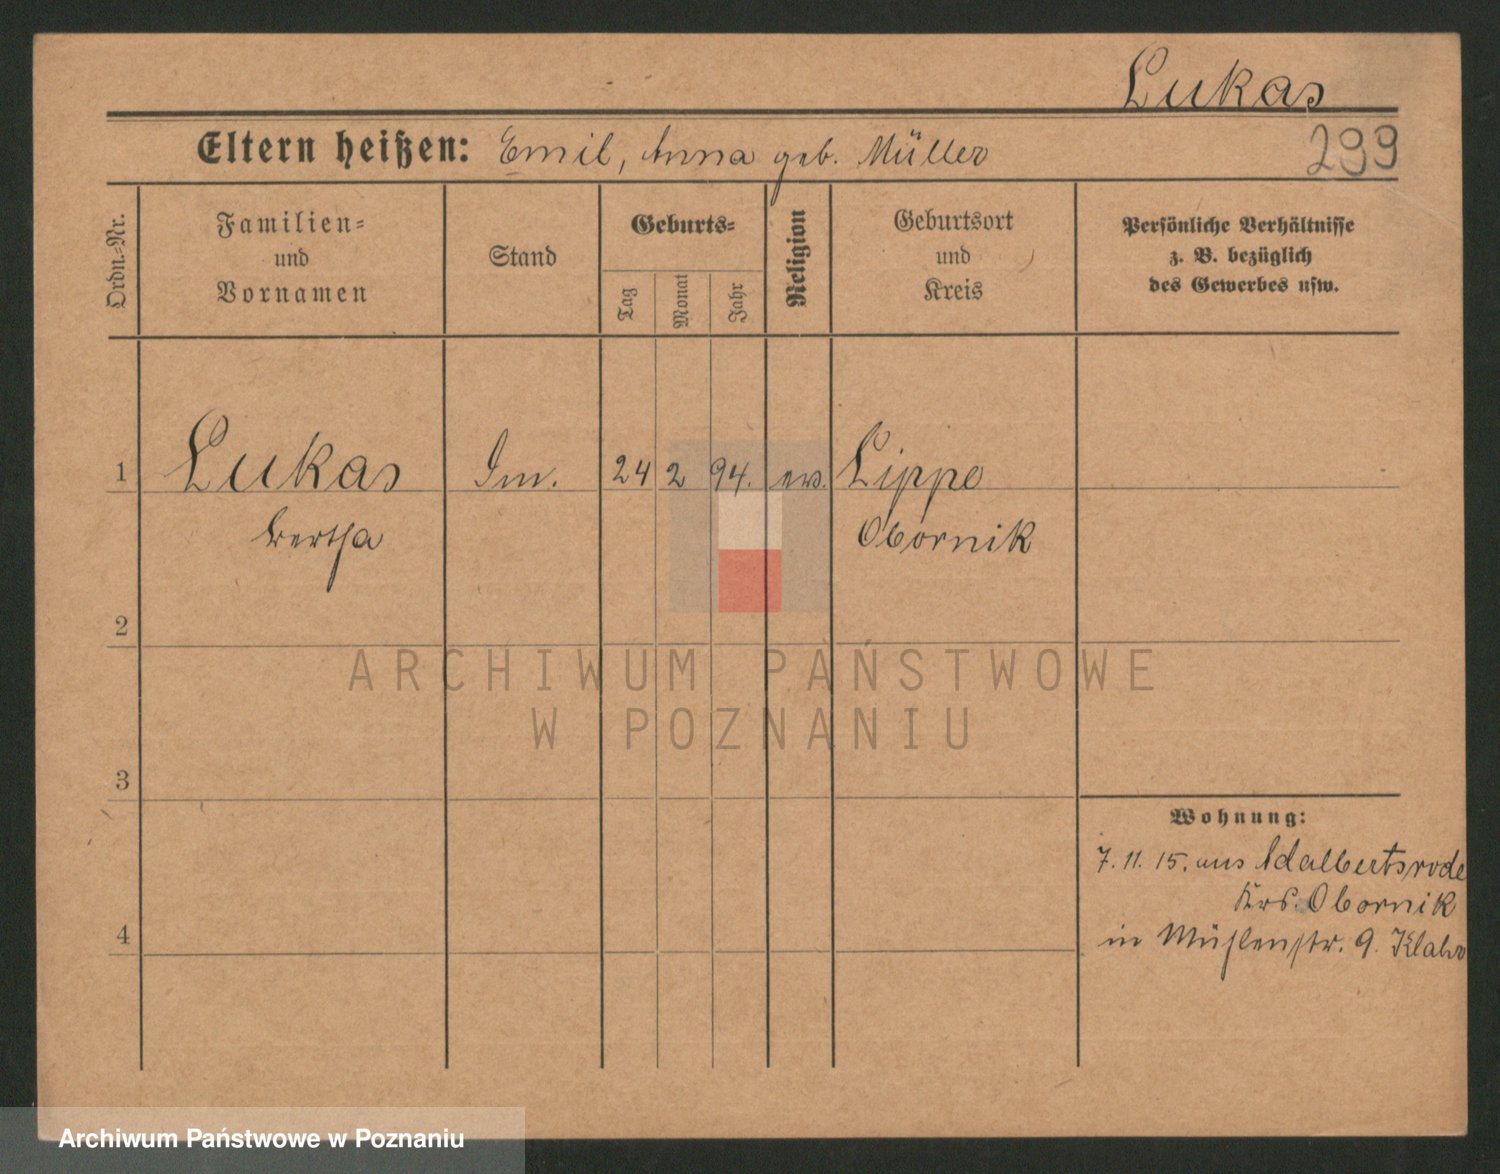 Lukas
Eltern heißen: Emil, Anna geb. Müller
299
Ordn.=Nr.
Familien=
und
Vornamen
Stand
Geburts=
Tag
Monat
Jahr
Religion
Geburtsort
und
Kreis
Persönliche Verhältnisse
z. B. bezüglich
des Gewerbes usw.
1 Lukas 24 2 94. ev. Lippe
Bertha Obornik
2
ARCHIWUM PAŃSTWOWE
W POZNANIU
3
Wohnung:
7.11.15. aus Adalbertsrode
Krs. Obornik
4
in Mühlenstr. 9.
Archiwum Państwowe w Poznaniu